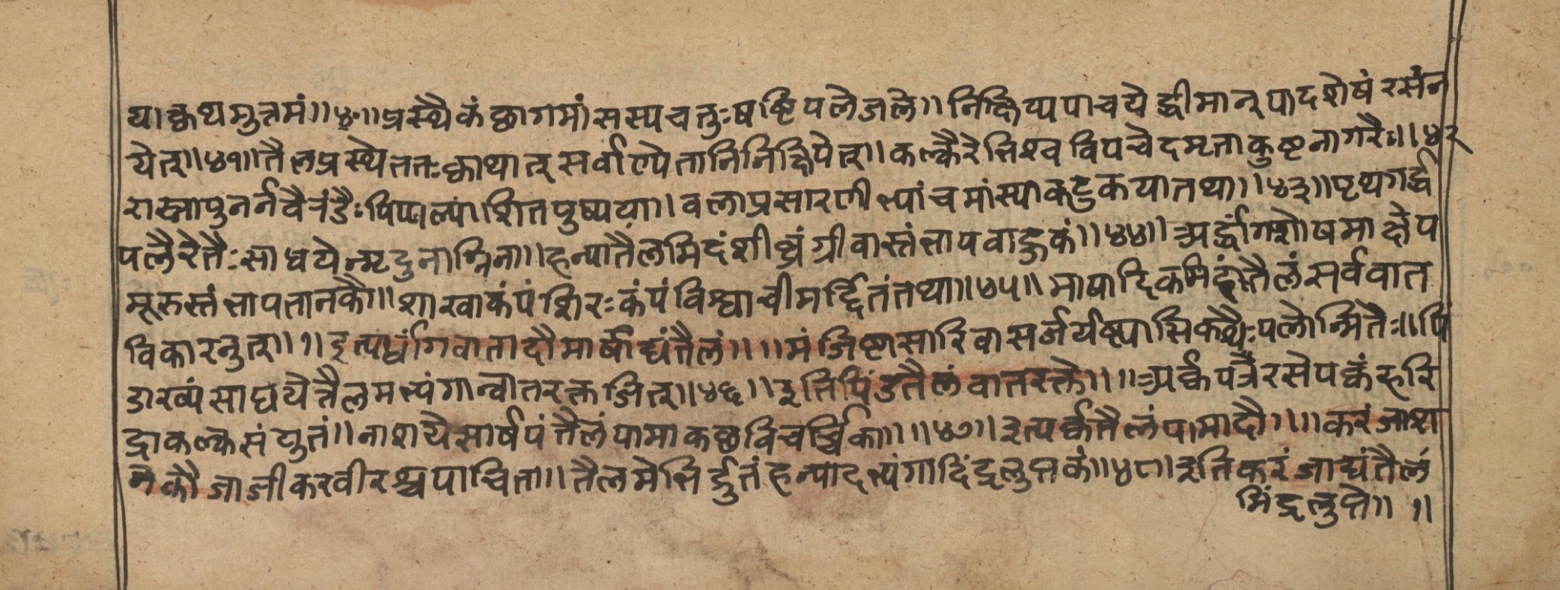 याक्वाथमुत्तमं॥४०॥प्रस्थैकं छागमांसस्यचतुःषष्टिपलेजले॥निक्षिप्यपाचयेद्धीमान्पादशेषंरसंन
येत्॥४१॥तैलप्रस्थेततःक्वाथात्सर्वाण्येतानिनिक्षिपेत्॥कल्कैरेतैश्चविपचेदमृताकुष्टनागरैः॥४२
रास्नापुनर्नवैरंडैःपिप्पल्याशितपुष्पया॥बलाप्रसारणीभ्यांचमांस्याकटुकयातथा॥४३॥पृथगर्द्ध
पलैरेतैःसाधयेन्मृदुनाग्निना॥हन्यातैलमिदंशीघ्रंग्रीवास्तंत्तापवाहुकं॥४४॥अर्द्धांगशोषमाक्षेप
मूरुस्तंत्तापतानकौ॥शाखाकंपंशिरःकंपंविश्वाचीमर्द्दितंतथा॥४५॥माषादिकमिदंतैलंसर्ववात
विकारनुत्॥१॥इत्यर्धांगवातादौमाषाद्यंतैलं॥॥मंजिष्टासारिवासर्जयष्ट्यासिक्थैःपलोन्मितैः॥पिं
डाख्यंसाधयेत्तैलमभ्यंगाद्वातरक्तजित्॥४६॥इतिपिंडतैलंवातरक्ते॥॥अर्कपत्रैरसेपक्वंहरि
द्राकल्कसंयुतं॥नाशयेसार्षपंतैलंपामाकछविचर्चिका॥॥४७॥इत्यर्कतैलंपामादौ॥॥करंजाश
नैकौजाजीकरवीरश्चपाचिता॥तैलमेभिर्द्रुतंहन्यादभ्यंगादिंद्रलुप्तकं॥४८॥इतिकरंजाद्यंतैलं
मिंद्रलुप्ते॥॥